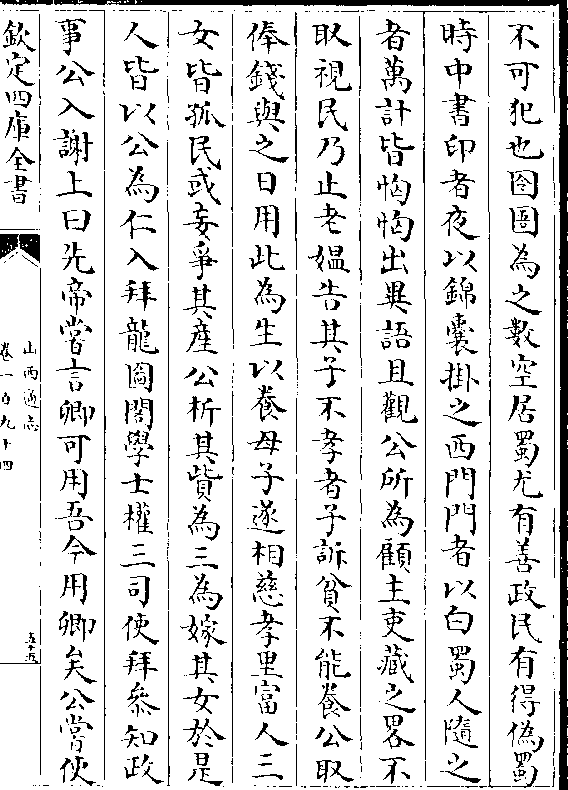 不可犯也囹圄為之數空居蜀尤有善政民有得偽蜀
時中書印者夜以錦囊掛之西門門者以白蜀人隨之
者萬計皆恟恟出異語且觀公所為顧主吏藏之畧不
取視民乃止老媼告其子不孝者子訴貧不能養公取
俸錢與之日用此為生以養母子遂相慈孝里富人三
女皆孤民或妄爭其產公析其貲為三為嫁其女於是
人皆以公為仁入拜龍圖閣學士權三司使拜叅知政
事公入謝上曰先帝嘗言卿可用吾今用卿矣公嘗使
欽定四庫全書
山西通志
卷一百九十四
五十五